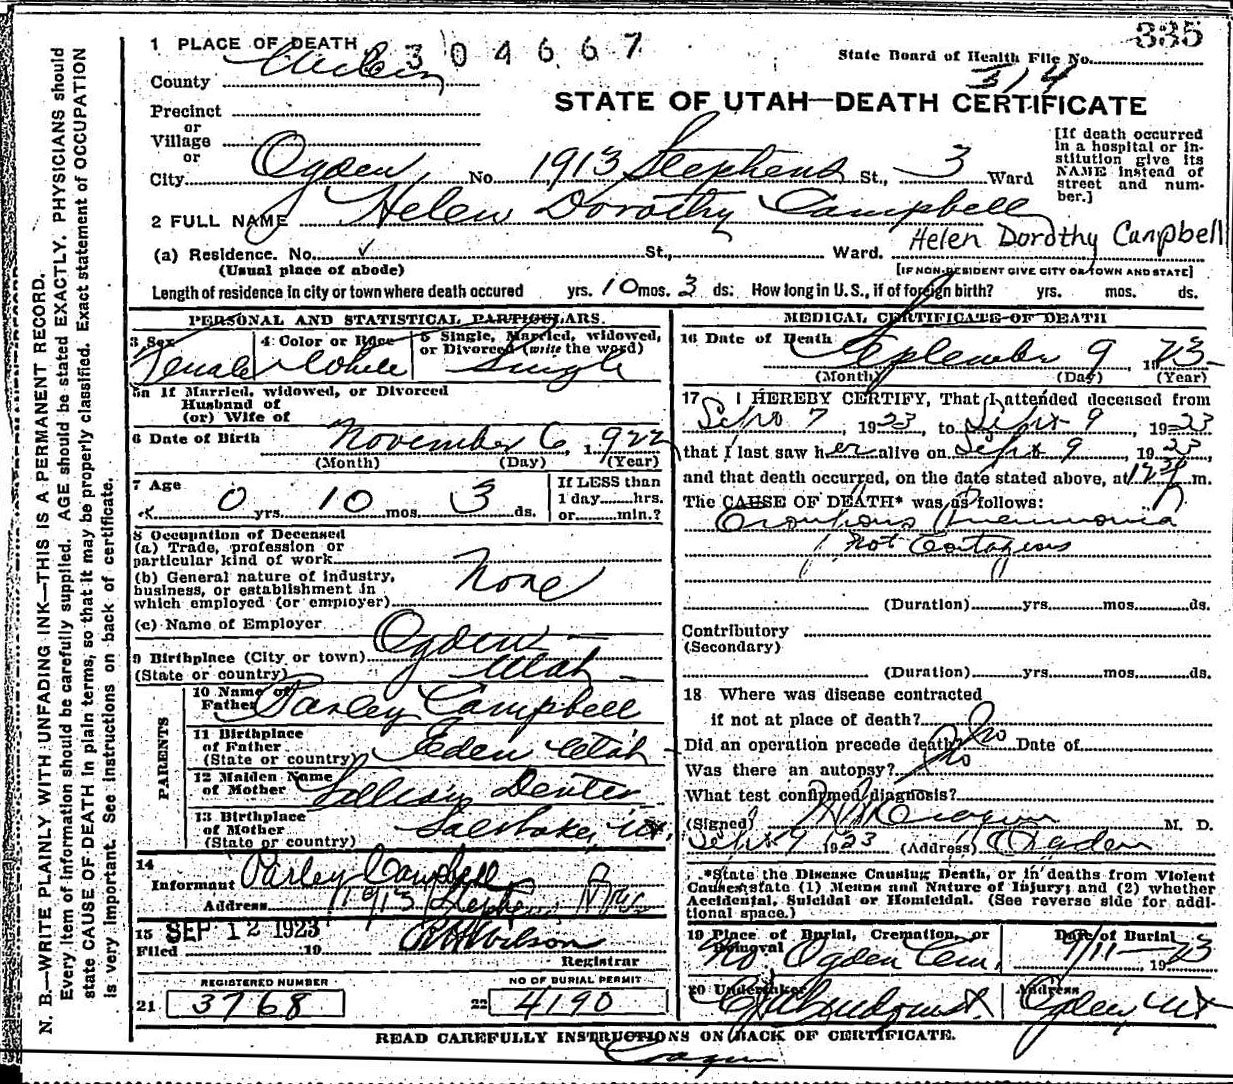 335
1 PLACE OF DEATH 304667
State Board of Health File No.
314
County Weber
STATE OF UTAH—DEATH CERTIFICATE
Precinct
or
Village
or
City Ogden No. 1913 Stephens St., 3 Ward
[If death occurred
in a hospital or in-
stitution give its
NAME instead of
street and num-
ber.]
2 FULL NAME Helen Dorothy Campbell
Helen Dorothy Campbell
(a) Residence. No. St., Ward.
(Usual place of abode)
[IF NON-RESIDENT GIVE CITY OR TOWN AND STATE]
Length of residence in city or town where death occured yrs. 10 mos. 3 ds: How long in U.S., if of foreign birth? yrs. mos. ds.
PERSONAL AND STATISTICAL PARTICULARS.
3 Sex Female
4 Color or Race White
5 Single, Married, widowed,
or Divorced (write the word)
Single
5a If Married, widowed, or Divorced
Husband of
(or) Wife of
6 Date of Birth November 6, 1922
(Month) (Day) (Year)
7 Age 0 yrs. 10 mos. 3 ds.
If LESS than
1 day hrs.
or min.?
8 Occupation of Deceased
(a) Trade, profession or
particular kind of work
(b) General nature of industry,
business, or establishment in
which employed (or employer)
None
(c) Name of Employer
9 Birthplace (City or town) Ogden
(State or country) Utah
PARENTS
10 Name of
Father Parley Campbell
11 Birthplace
of Father
(State or country) Eden Utah
12 Maiden Name
of Mother
13 Birthplace
of Mother
(State or country)
14
Informant Parley Campbell
Address 1913 Stephens
15 SEP 12 1923
Filed 19
Wilson
Registrar
REGISTERED NUMBER
21 3768
NO OF BURIAL PERMIT
22 4190
MEDICAL CERTIFICATE OF DEATH
16 Date of Death September 9, 1923
(Month) (Day) (Year)
17 I HEREBY CERTIFY, That I attended deceased from
Sept 7, 1923, to Sept 9, 1923
that I last saw her alive on Sept 9, 1923,
and that death occurred, on the date stated above, at m.
The CAUSE OF DEATH* was as follows:
Croupous Pneumonia
not Contagious
(Duration) yrs. mos. ds.
Contributory
(Secondary)
(Duration) yrs. mos. ds.
18 Where was disease contracted
if not at place of death?
Did an operation precede death? No Date of
Was there an autopsy? No
What test confirmed diagnosis?
(Signed) M. D.
Sept 9 1923 (Address) Ogden
*State the Disease Causing Death, or in deaths from Violent
Causes state (1) Means and Nature of Injury; and (2) whether
Accidental, Suicidal or Homicidal. (See reverse side for addi-
tional space.)
19 Place of Burial, Cremation, or
Removal
No Ogden Cem.
Date of Burial
9/11 1923
20 Undertaker
Address
Ogden, Ut
READ CAREFULLY INSTRUCTIONS ON BACK OF CERTIFICATE.
N. B.—WRITE PLAINLY WITH UNFADING INK—THIS IS A PERMANENT RECORD.
Every item of information should be carefully supplied. AGE should be stated EXACTLY. PHYSICIANS should
state CAUSE OF DEATH in plain terms, so that it may be properly classified. Exact statement of OCCUPATION
is very important. See instructions on back of certificate.